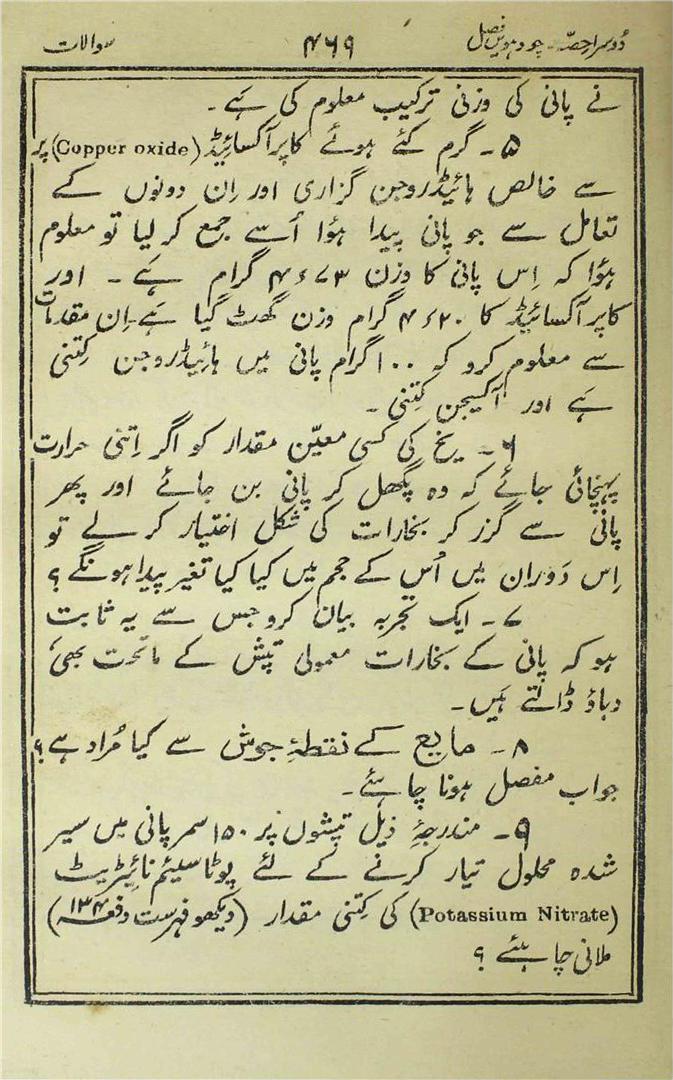 دُوسرا حِصّہ ۔ چودہویں فصل
۴۶۹
سوالات
نے پانی کی وزنی ترکیب معلوم کی ہَے ۔
۵ ۔ گرم کئے ہوئے کاپرآکسائیڈ (Copper oxide) پر
سے خالص ہائیڈروجن گزاری اور اِن دونوں کے
تعامل سے جو پانی پیدا ہؤا اُسے جمع کر لیا تو معلوم
ہؤا کہ اِس پانی کا وزن ۴٫۷۳ گرام ہَے ۔ اور
کاپرآکسائیڈ کا ۴٫۲۰ گرام وزن گھٹ گیا ہَے ۔ اِن مقدمات
سے معلوم کرو کہ ۱۰۰ گرام پانی میں ہائیڈروجن کِتنی
ہَے اور آکسیجن کِتنی ۔
۶ ۔ یخ کی کسی معیّن مقدار کو اگر اِتنی حرارت
پہنچائی جائے کہ وہ پگھل کر پانی بن جائے اور پھر
پانی سے گزر کر بخارات کی شکل اختیار کر لے تو
اِس دَوران میں اُس کے حجم میں کیا کیا تغیر پیدا ہونگے ؟
۷ ۔ ایک تجربہ بیان کرو جس سے یہ ثابت
ہو کہ پانی کے بخارات معمولی تپش کے ماتحت بھی
دباؤ ڈالتے ہَیں ۔
۸ ۔ مایع کے نقطۂ جوش سے کیا مُراد ہے ؟
جواب مفصل ہونا چاہئے ۔
۹ ۔ مندرجۂ ذیل تپشوں پر ۱۵۰ سمر پانی میں سیر
شدہ محلول تیار کرنے کے لئے پوٹاسیئم نائیٹریٹ
(Potassium Nitrate) کی کِتنی مقدار (دیکھو فہرست دفعہ ۱۳۴)
ملانی چاہئے ؟